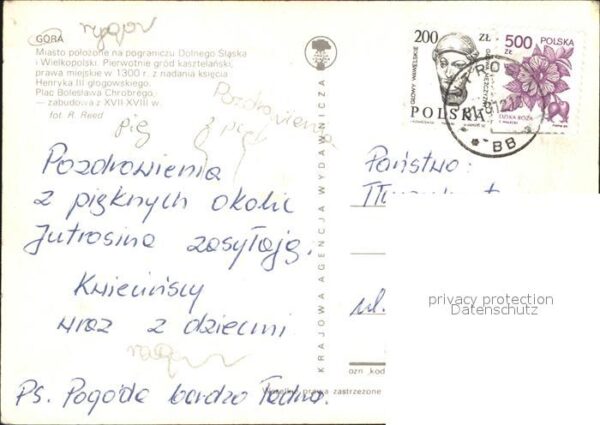 GÓRA
Miasto położone na pograniczu Dolnego Śląska
i Wielkopolski. Pierwotnie gród kasztelański,
prawa miejskie w 1300 r. z nadania księcia
Henryka III głogowskiego.
Plac Bolesława Chrobrego,
— zabudowa z XVII-XVIII w.
fot. R. Reed
Pozdrowienia
Pozdrowienia
z pięknych okolic
Jutrosina zasyłają
Kwiecińscy
wraz z dziećmi
Ps. Pogoda bardzo ładna.
KRAJOWA AGENCJA WYDAWNICZA
200 ZŁ
GŁOWY WAWELSKIE
POLSKA
500 ZŁ
POLSKA
DZIKA RÓŻA
BB
Państwo:
ul.
privacy protection
Datenschutz
prawa zastrzeżone